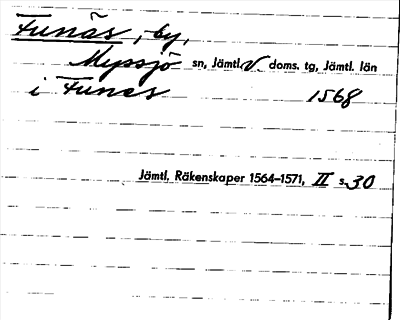 Funäs, by,
Myssjö sn, Jämtl. V. doms. tg, Jämtl. län
i Funes 1568
Jämtl. Räkenskaper 1564–1571, II s. 30